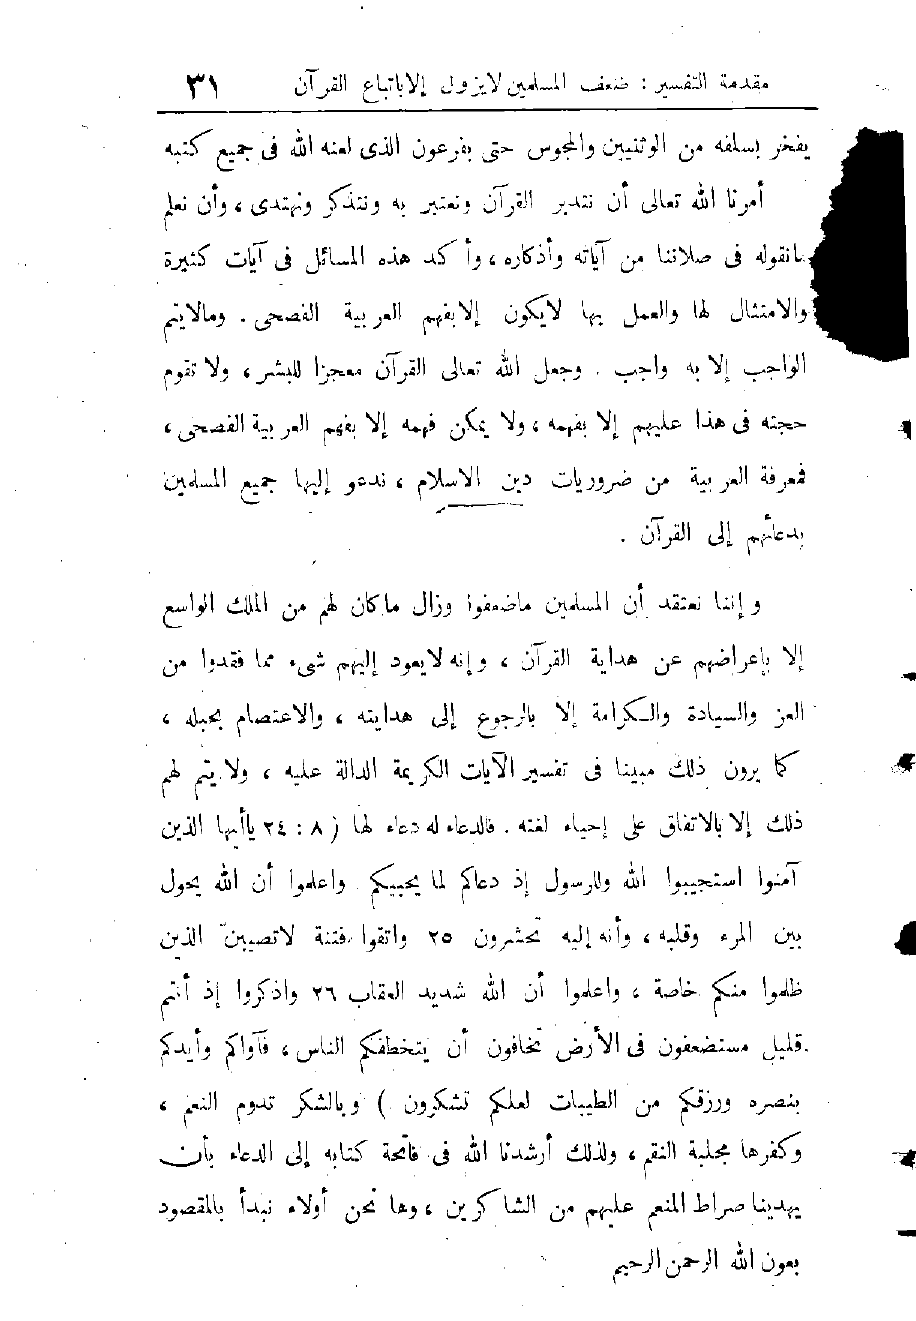 مقدمة التفسير : ضعف المسلمين لايزول إلا باتباع القرآن ٣١
يفخر بسلفه من الوثنيين والمجوس حتى بفرعون الذى لعنه الله فى جميع كتبه
أمرنا الله تعالى أن نتدبر القرآن ونعتبر به ونتذكر ونهتدى ، وأن نعلم
مانقوله فى صلاتنا من آياته وأذكاره ، وأكد هذه المسائل فى آيات كثيرة
والامتثال لها والعمل بها لايكون إلا بفهم العربية الفصحى . ومالايتم
الواجب إلا به واجب . وجعل الله تعالى القرآن معجزا للبشر ، ولا تقوم
حجته فى هذا عليهم إلا بفهمه ، ولا يمكن فهمه إلا بفهم العربية الفصحى ،
فمعرفة العربية من ضروريات دين الاسلام ، ندعو إليها جميع المسلمين
بدعائهم إلى القرآن .
وإننا نعتقد أن المسلمين ماضعفوا وزال ماكان لهم من الملك الواسع
إلا بإعراضهم عن هداية القرآن ، وإنه لايعود إليهم شىء مما فقدوا من
العز والسيادة والكرامة إلا بالرجوع إلى هدايته ، والاعتصام بحبله ،
كما يرون ذلك مبينا فى تفسير الآيات الكريمة الدالة عليه ، ولا يتم لهم
ذلك إلا بالاتفاق على إحياء لغته . فالدعاء له دعاء لها ( ٨ : ٢٤ ياأيها الذين
آمنوا استجيبوا لله وللرسول إذ دعاكم لما يحييكم واعلموا أن الله يحول
بين المرء وقلبه ، وأنه إليه تحشرون ٢٥ واتقوا فتنة لاتصيبنّ الذين
ظلموا منكم خاصة ، واعلموا أن الله شديد العقاب ٢٦ واذكروا إذ أنتم
قليل مستضعفون فى الأرض تخافون أن يتخطفكم الناس ، فآواكم وأيدكم
بنصره ورزقكم من الطيبات لعلكم تشكرون ) وبالشكر تدوم النعم ،
وكفرها مجلبة النقم ، ولذلك أرشدنا الله فى فاتحة كتابه إلى الدعاء بأن
يهدينا صراط المنعم عليهم من الشاكرين ، وها نحن أولاء نبدأ بالمقصود
بعون الله الرحمن الرحيم